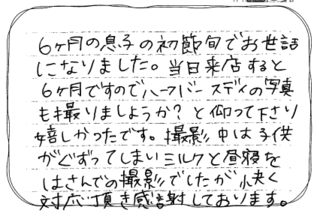 6ヶ月の息子の初節句でお世話
になりました。当日来店すると
6ヶ月ですのでハーフバースディの写真
も撮りましょうか？と仰って下さり
嬉しかったです。撮影中は子供
がぐずってしまいミルクと昼寝を
はさんでの撮影でしたが快く
対応頂き感謝しております。